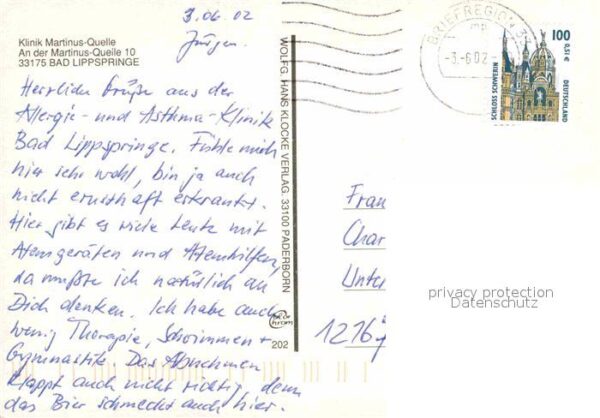 3.06.02
Jürgen.
Klinik Martinus-Quelle
An der Martinus-Quelle 10
33175 BAD LIPPSPRINGE
Herzliche Grüße aus der
Allergie- und Asthma-Klinik
Bad Lippspringe. Fühle mich
hier sehr wohl, bin ja auch
nicht ernsthaft erkrankt.
Hier gibt es viele Leute mit
Atemgeräten und Atemhilfen,
da mußte ich natürlich an
Dich denken. Ich habe auch
wenig Therapie, Schwimmen +
Gymnastik. Das Abnehmen
klappt auch nicht richtig denn
das Bier schmeckt auch hier.
WOLFG. HANS KLOCKE VERLAG. 33100 PADERBORN
202
BRIEFREGION
-3.-6.02
100
0,51€
SCHLOSS SCHWERIN
DEUTSCHLAND
Frau
Char
Unter
1216
privacy protection
Datenschutz